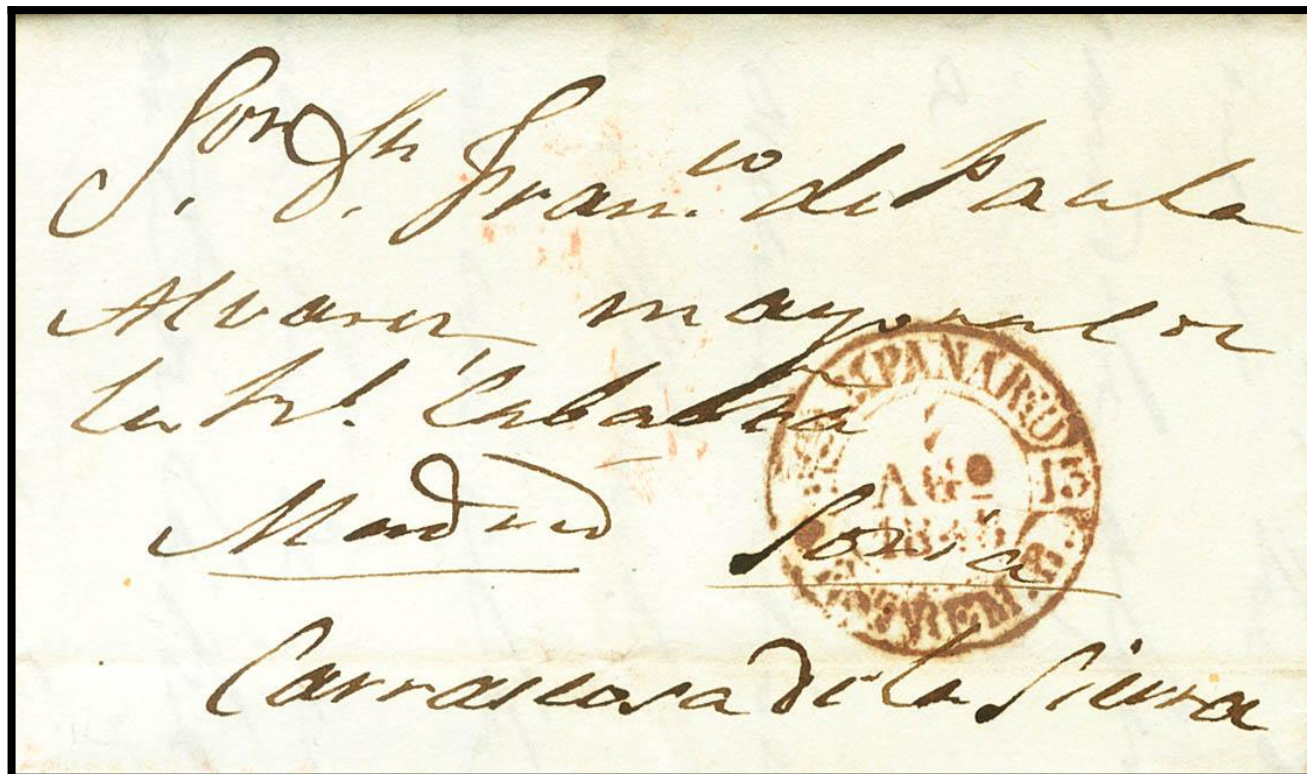 Sor. Dn. Franco. de Paula
Alvarez mayoral de
la Rl. Cabaña
Madrid Soria
Carrascosa de la Sierra
ESPANARDO 13
AGO
ESTREM. B.